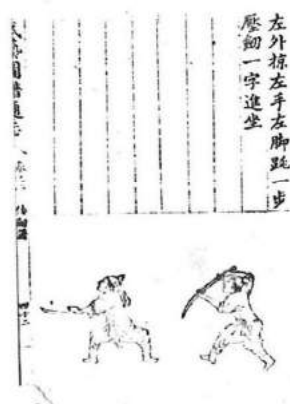 左外掠左手左脚跳一步
壓劒一字進坐
武藝圖譜通志 卷二
四十二